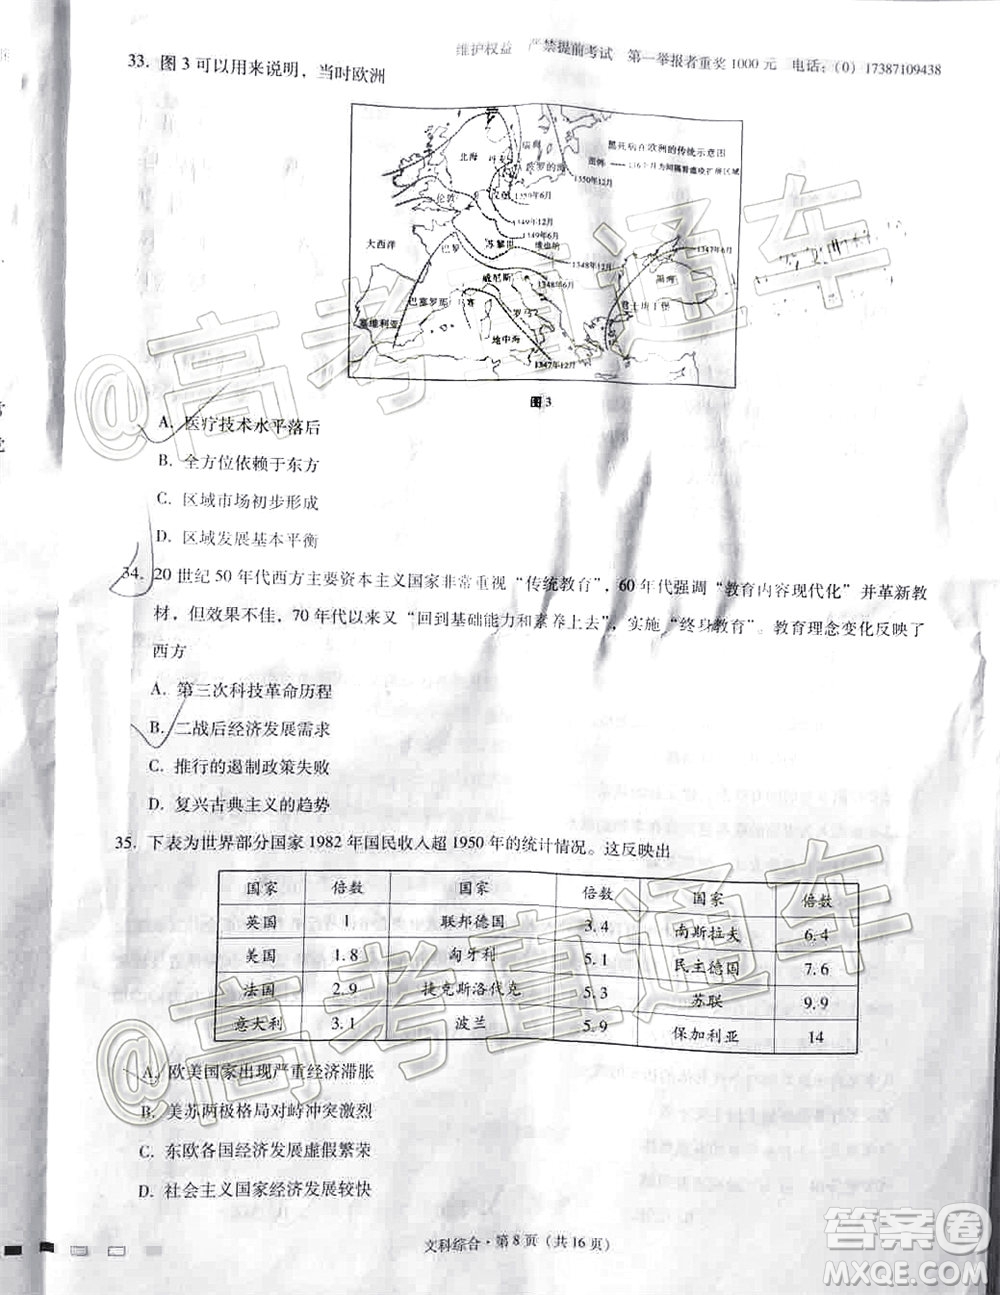 维护权益 严禁提前考试 第一举报者重奖 1000 元 电话：(0) 17387109438
33. 图 3 可以用来说明，当时欧洲
黑死病在欧洲的传统示意图
北海
瑞典
波罗的海
1350年12月
伦敦
1350年6月
1349年12月
1349年6月
大西洋
巴黎
维也纳
1348年12月
1347年6月
黑海
威尼斯
1348年6月
巴塞罗那
君士坦丁堡
塞维利亚
罗马
地中海
1347年12月
图 3
A. 医疗技术水平落后
B. 全方位依赖于东方
C. 区域市场初步形成
D. 区域发展基本平衡
34. 20 世纪 50 年代西方主要资本主义国家非常重视“传统教育”，60 年代强调“教育内容现代化”并革新教
材，但效果不佳，70 年代以来又“回到基础能力和素养上去”，实施“终身教育”。教育理念变化反映了
西方
A. 第三次科技革命历程
B. 二战后经济发展需求
C. 推行的遏制政策失败
D. 复兴古典主义的趋势
35. 下表为世界部分国家 1982 年国民收入超 1950 年的统计情况。这反映出
国家 倍数 国家 倍数 国家 倍数
英国 1 联邦德国 3.4 南斯拉夫 6.4
美国 1.8 匈牙利 5.1 民主德国 7.6
法国 2.9 捷克斯洛伐克 5.3 苏联 9.9
意大利 3.1 波兰 5.9 保加利亚 14
A. 欧美国家出现严重经济滞胀
B. 美苏两极格局对峙冲突激烈
C. 东欧各国经济发展虚假繁荣
D. 社会主义国家经济发展较快
文科综合·第 8 页（共 16 页）
@高考直通车
@高考直通车
答案圈
MXQE.COM